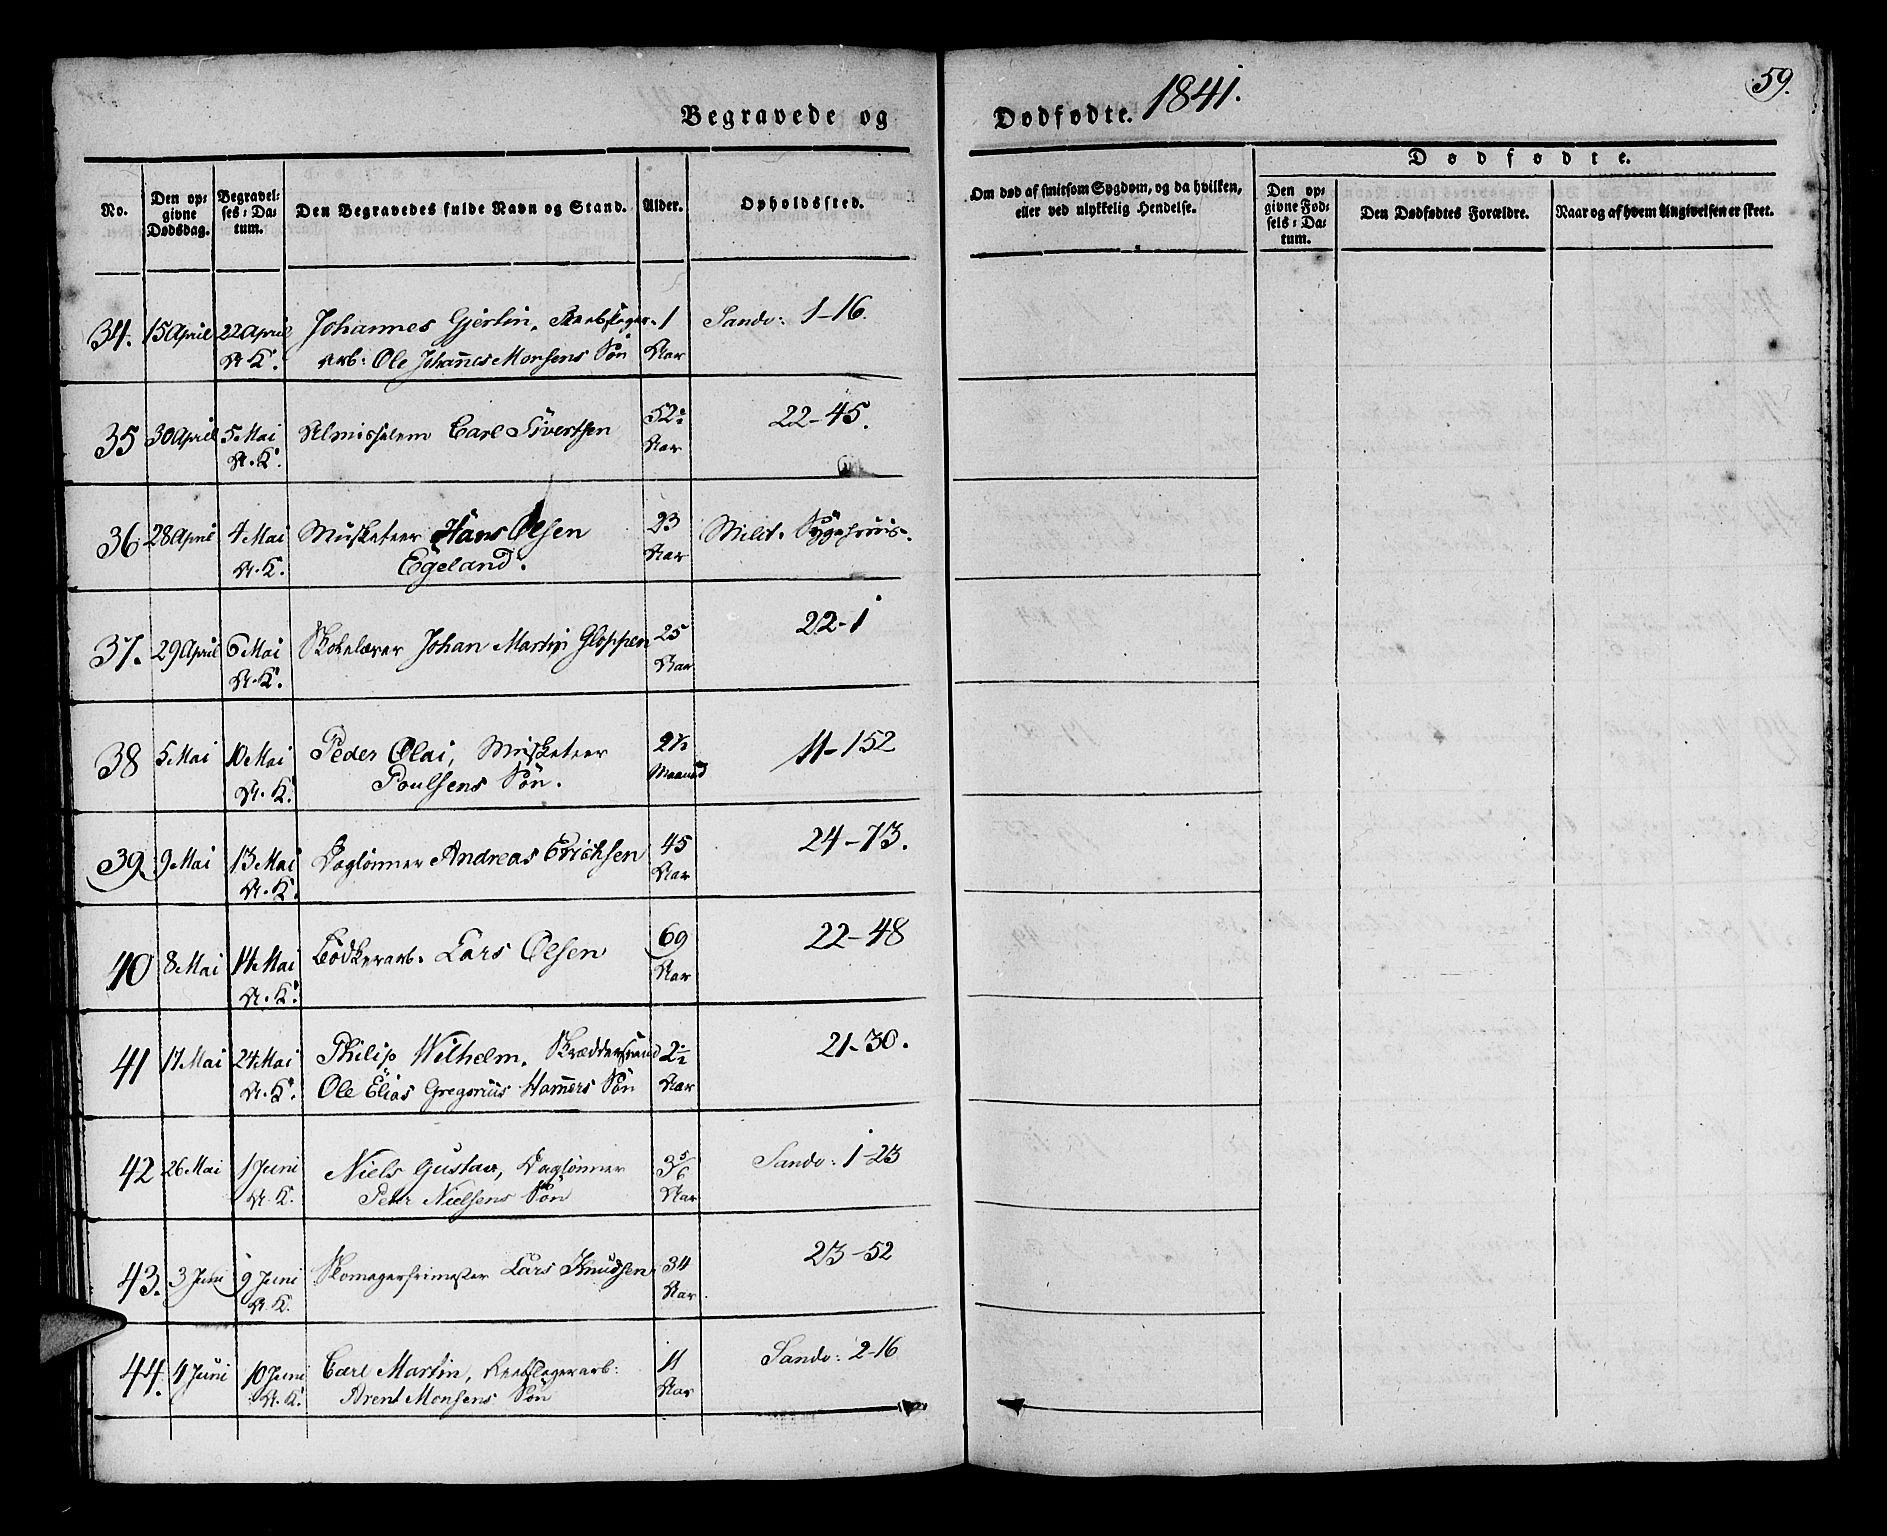 59.
Begravede og Dødfødte. 1841.
No. | Den opgivne Dødsdag. | Begravelses-Datum. | Den Begravedes fulde Navn og Stand. | Alder. | Opholdssted. | Om død af smitsom Sygdom, og da hvilken, eller ved ulykkelig Hendelse. | Dødfødte. | Den opgivne Fødsels-Datum. | Den Dødfødtes Forældre. | Naar og af hvem Angivelsen er skeet.
34. 15 April 22 April Johannes Gjertin, Reebslager- 1 Sandv: 1-16.
A. K. arb: Ole Johannes Monsens Søn Aar
35 30 April 5 Mai Almisselem Carl Sivertsen 52 22-45.
A. K. Aar
36 28 April 4 Mai Musketeer Hans Olsen 23 Milit. Sygehuus.
A. K. Egeland. Aar
37. 29 April 6 Mai Johan Martin Gloppen 25 22-1
A. K. Aar
38 5 Mai 10 Mai Peder Olai, Musketeer 2½ 11-152
A. K. Poulsens Søn. Maaned
39 9 Mai 13 Mai Daglønner Andreas Erichsen 45 24-73.
A. K. Aar
40 8 Mai 14 Mai Bødkerarb. Lars Olsen 69 22-48
A. K. Aar
41 17 Mai 24 Mai Philip Wilhelm, Skræddersvend 2½ 21-30.
A. K. Ole Elias Gregorius Hamers Søn Aar
42 26 Mai 1 Juni Niels Gustav, Daglønner 3 5/6 Sandv: 1-23
A. K. Peter Nielsens Søn Aar
43. 3 Juni 9 Juni Skomagerfrimester Lars Knudsen 34 23-52
A. K. Aar
44. 4 Juni 10 Juni Carl Martin, Reebslagerarb: 11 Sandv: 2-16
A. K. Arent Monsens Søn Aar